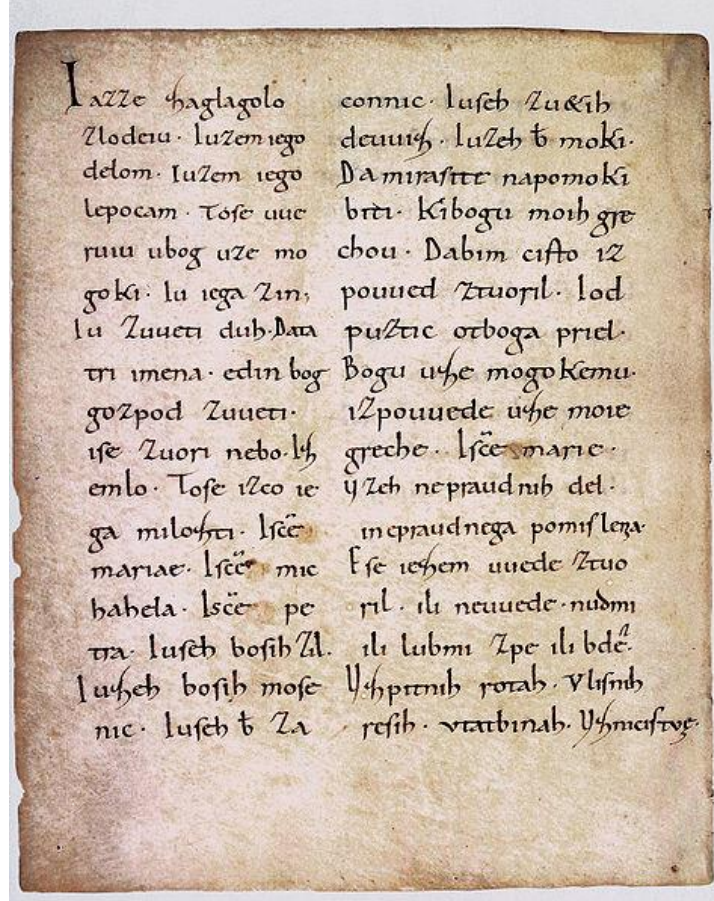 Iazze zaglagolo
zlodeiu· Iuzem iego
delom· Iuzem iego
lepocam· Tose uue
ruiu ubog uze mo
goki· Iu iega zin;
Iu zuueti duh· Data
tri imena· edin bog
gozpod zuueti·
ise zuori nebo· Iz
emlo· Tose izco ie
ga milozti· Isc̄e
mariae· Isc̄e mic
hahela· Isc̄e pe
tra· Iuseh bosih zil·
Iuzeh bosih mose
nic· Iuseh b̄ za
connic· Iuseh zu&ih
deuuiz· Iuzeh b̄ moki·
Da mirastte napomoki
biti· Kibogu moih gre
chou· Dabim cisto iz
pouued ztuoril· Iod
puztic otboga priel·
Bogu uze mogokemu·
izpouuede uze moie
greche· Isc̄e marie·
y zeh nepraudnih del·
inepraudnega pomislena·
Ese iezem uuede ztuo
ril· ili neuuede· nudmi
ili lubmi zpe ili bde·
Vzpitnih rotah· Vlisnih
resih· vtatbinah· Vznicistoge·